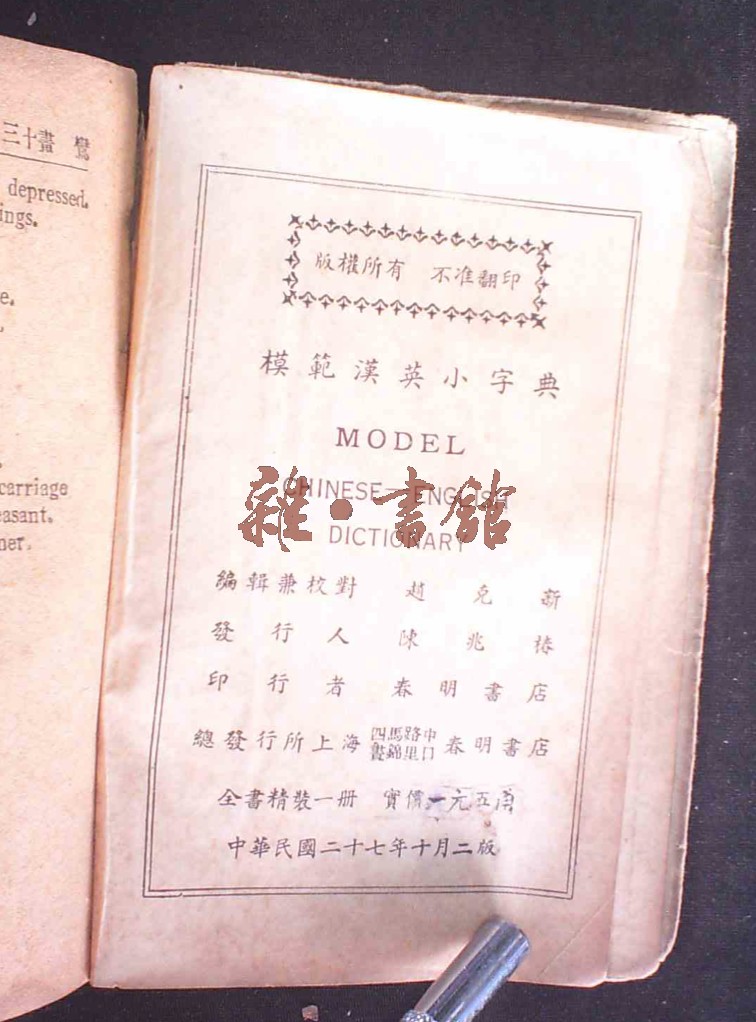 三十畫 鸞
depressed.
ings.
e.
carriage
easant.
ner.
版權所有 不准翻印
模範漢英小字典
MODEL
CHINESE—ENGLISH
DICTIONARY
雜·書館
編輯兼校對 趙免新
發行人 陳兆椿
印行者 春明書店
總發行所上海四馬路中晝錦里口春明書店
全書精裝一冊 實價一元五角
中華民國二十七年十月二版